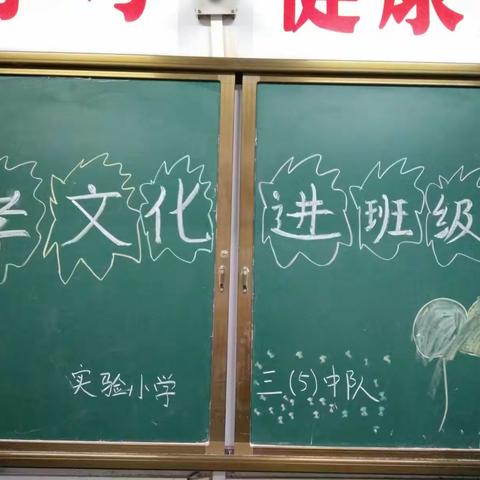 健康
文化进班级
实验小学 三(5)中队